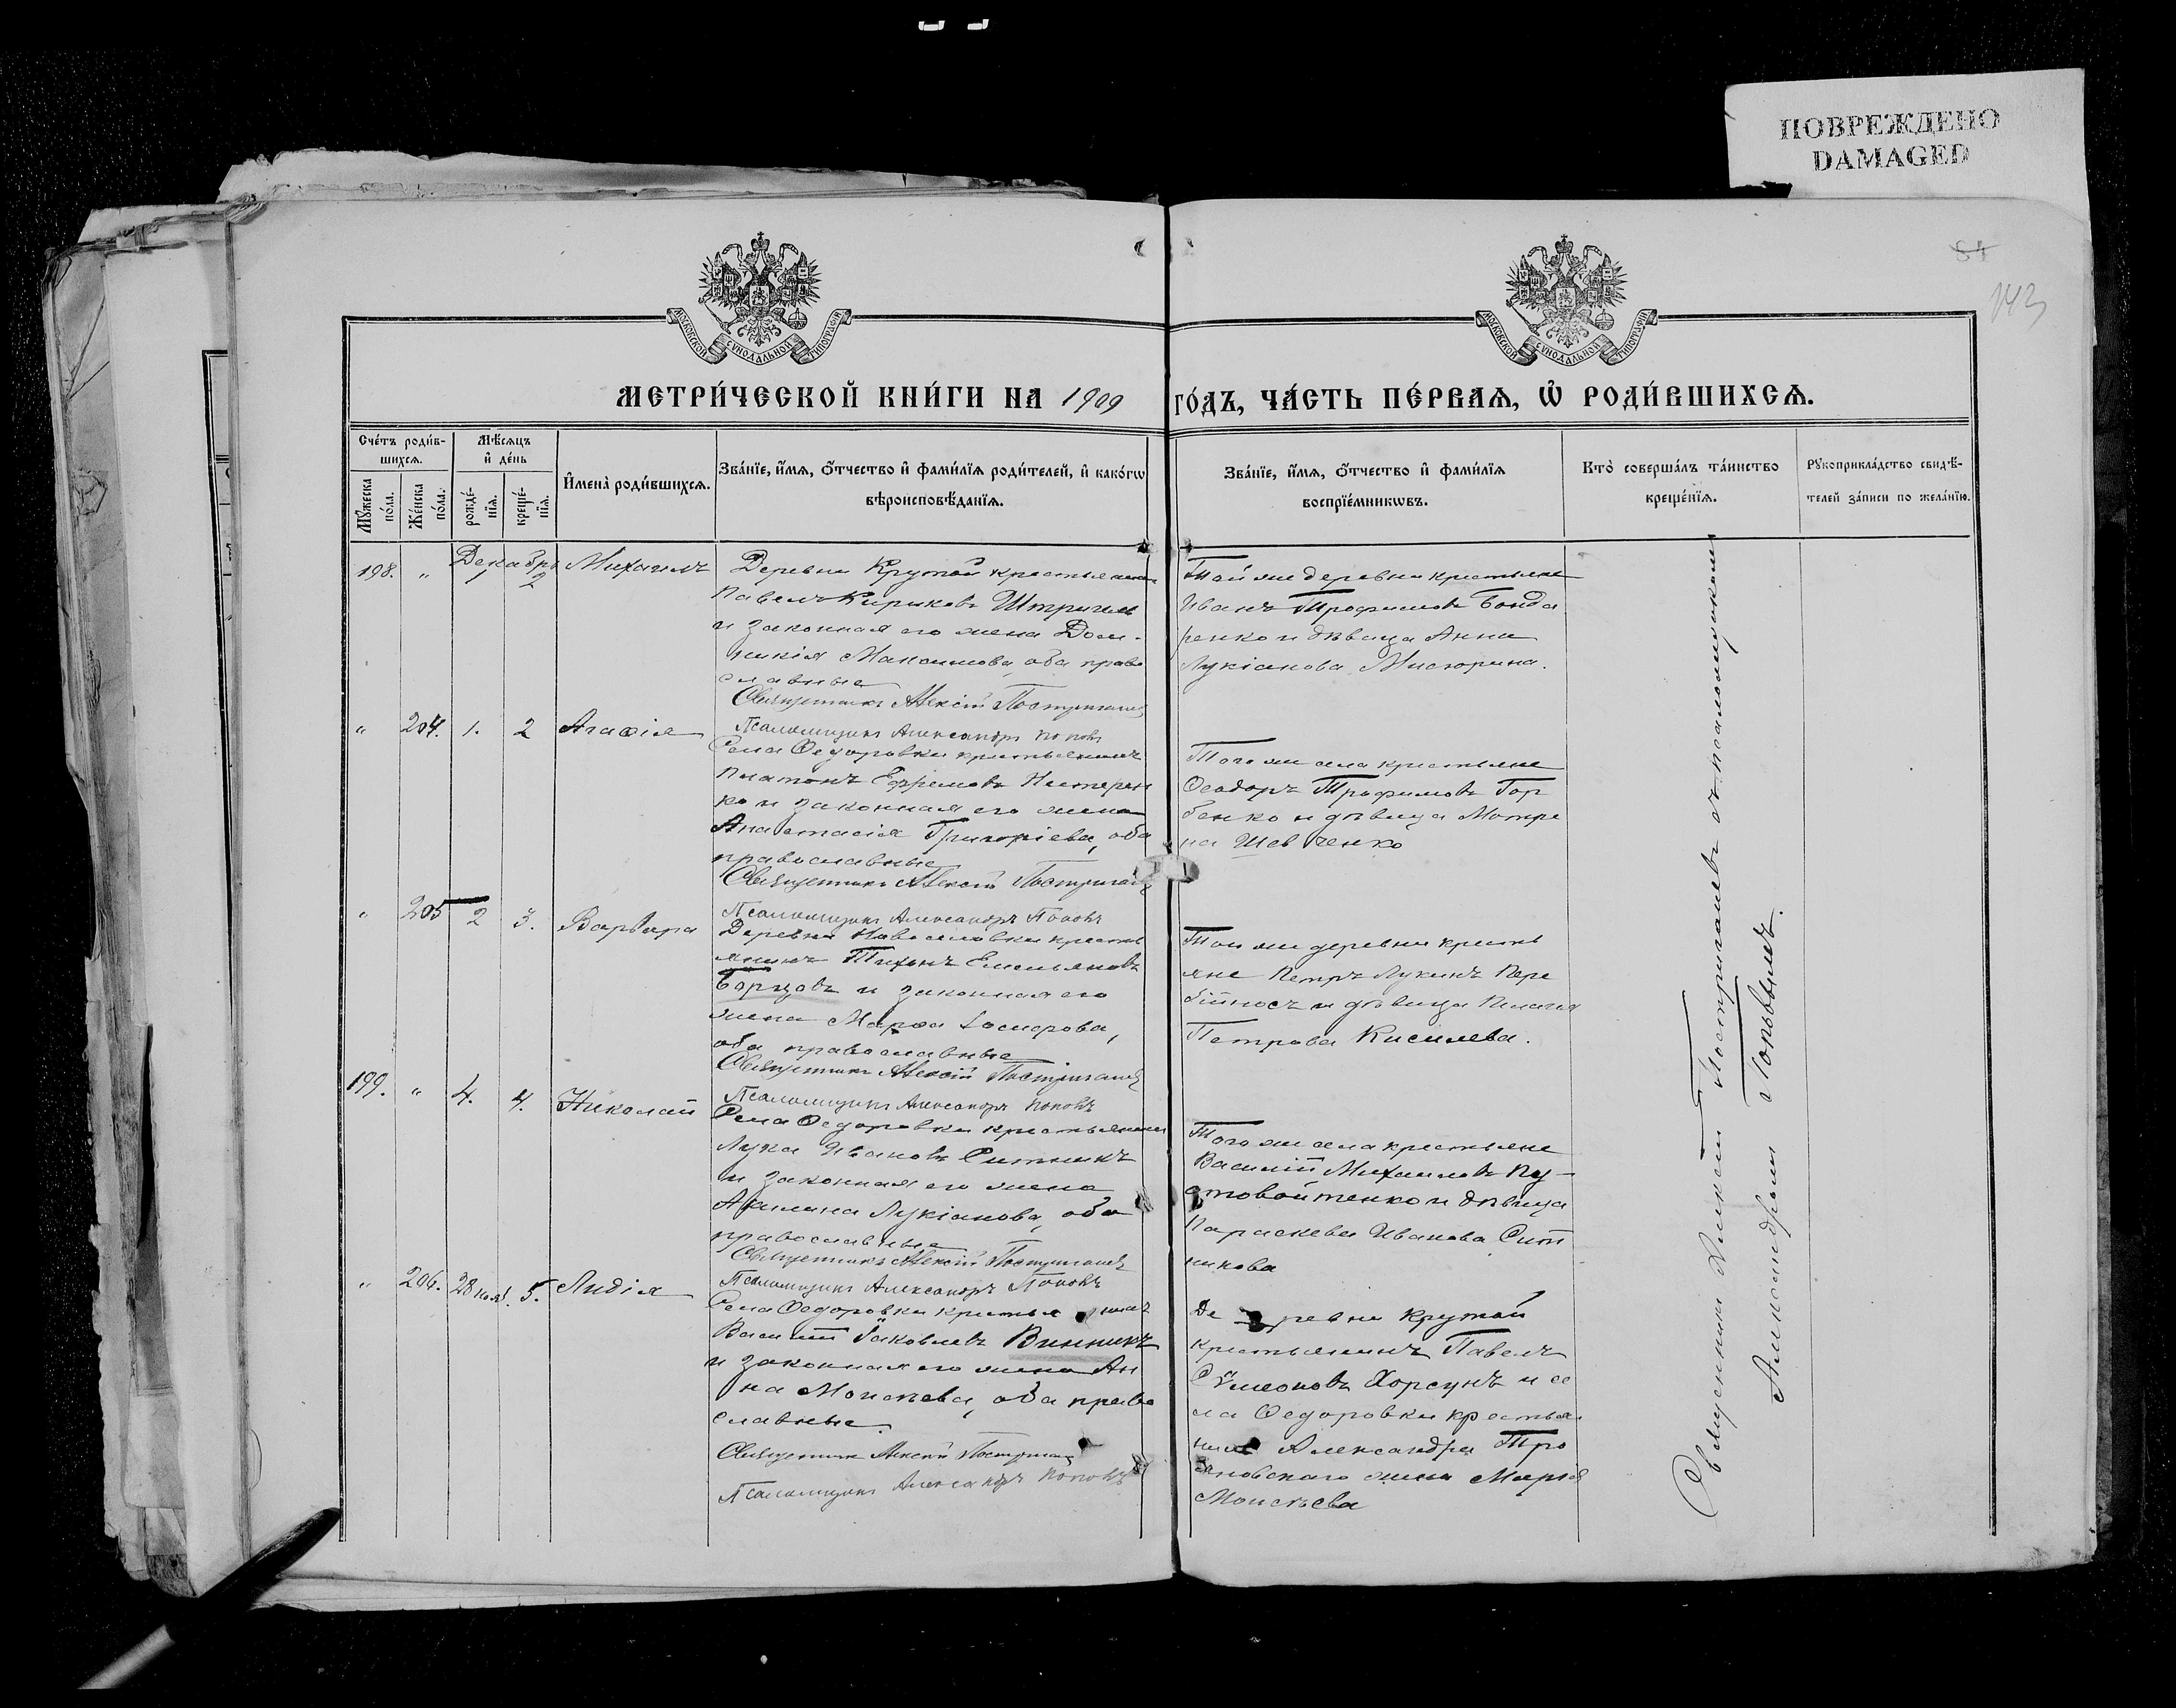 ПОВРЕЖДЕНО
DAMAGED
84
143
МОСКОВСКОЙ СѴНОДАЛЬНОЙ ТИПОГРАФІИ
МОСКОВСКОЙ СѴНОДАЛЬНОЙ ТИПОГРАФІИ
МЕТРИ́ЧЕСКОЙ КНИ́ГИ НА 1909 ГО́ДЪ, ЧА́СТЬ ПЕ́РВАѦ, Ѡ҆ РОДИ́ВШИХСѦ.
Сче́тъ роди́в-
шихсѧ.
Мꙋ́жеска
по́ла.
Же́нска
по́ла.
Мѣ́сѧцъ
и҆ де́нь
рожде́-
нїѧ.
креще́-
нїѧ.
И҆мена̀ роди́вшихсѧ.
Зва́нїе, и҆́мѧ, ѻ҆́тчество и҆ фами́лїѧ роди́телей, и҆ како́гѡ
вѣроисповѣ́данїѧ.
Зва́нїе, и҆́мѧ, ѻ҆́тчество и҆ фами́лїѧ
воспрїе́мникѡвъ.
Кто̀ соверша́лъ та́инство
креще́нїѧ.
Рꙋкоприкла́дство свидѣ́-
телей за́писи по жела́нїю.
198. " Декабрь 1 2 Михаилъ
Деревни Крутой крестьянинъ
Павелъ Кириковъ Штригель
и законная его жена Дом-
никія Максимова, оба право
славные
Священникъ Алексій Постригачев
Псаломщикъ Александръ Поповъ
Той же деревни крестьяне
Иванъ Трофимовъ Бонда
ренко и дѣвица Анна
Лукіанова Мисюрина.
" 204. 1. 2 Агафія
Села Ѳедоровки крестьянинъ
Платонъ Ефремовъ Нестерен
ко и законная его жена
Анастасія Григоріева, оба
православные
Священникъ Алексій
Псаломщикъ Александръ Поповъ
Того же села крестьяне
Ѳеодоръ Трофимовъ Гор
бенко и дѣвица Мотре
на Шевченко
" 205 2 3. Варвара
Деревни Новоселовки кресть
янинъ Тихонъ Емельяновъ
Борцовъ и законная его
жена Марѳа
оба православные
Священникъ Алексій
Псаломщикъ Александръ Поповъ
Той же деревни кресть
яне Петръ Лукинъ Пере
бійносъ и дѣвица Пелагія
Петрова Киселева.
199. " 4. 4. Николай
Села Ѳедоровки крестьянинъ
Лука Ивановъ Ситникъ
и законная его жена
Акилина Лукіанова, оба
православные
Священникъ Алексій
Псаломщикъ Александръ Поповъ
Того же села крестьяне
Василій Михаиловъ Пу-
стовойтенко и дѣвица
Параскева Иванова Сит
никова
" 206. 28 нояб. 5. Лидія
Села Ѳедоровки крестьянинъ
Василій Іаковлевъ Винникъ
и законная его жена Ан
на Моисеева, оба право
славные.
Священникъ Алексій
Псаломщикъ Александръ Поповъ
Деревни Крутой
крестьянинъ Павелъ
Сѵмеоновъ Хорсунъ и се
ла Ѳедоровки крестья
нина Александра Тро
яновскаго жена Марія
Моисеева
Священникъ Алексій Постригачевъ съ псаломщикомъ
Александромъ Поповымъ.